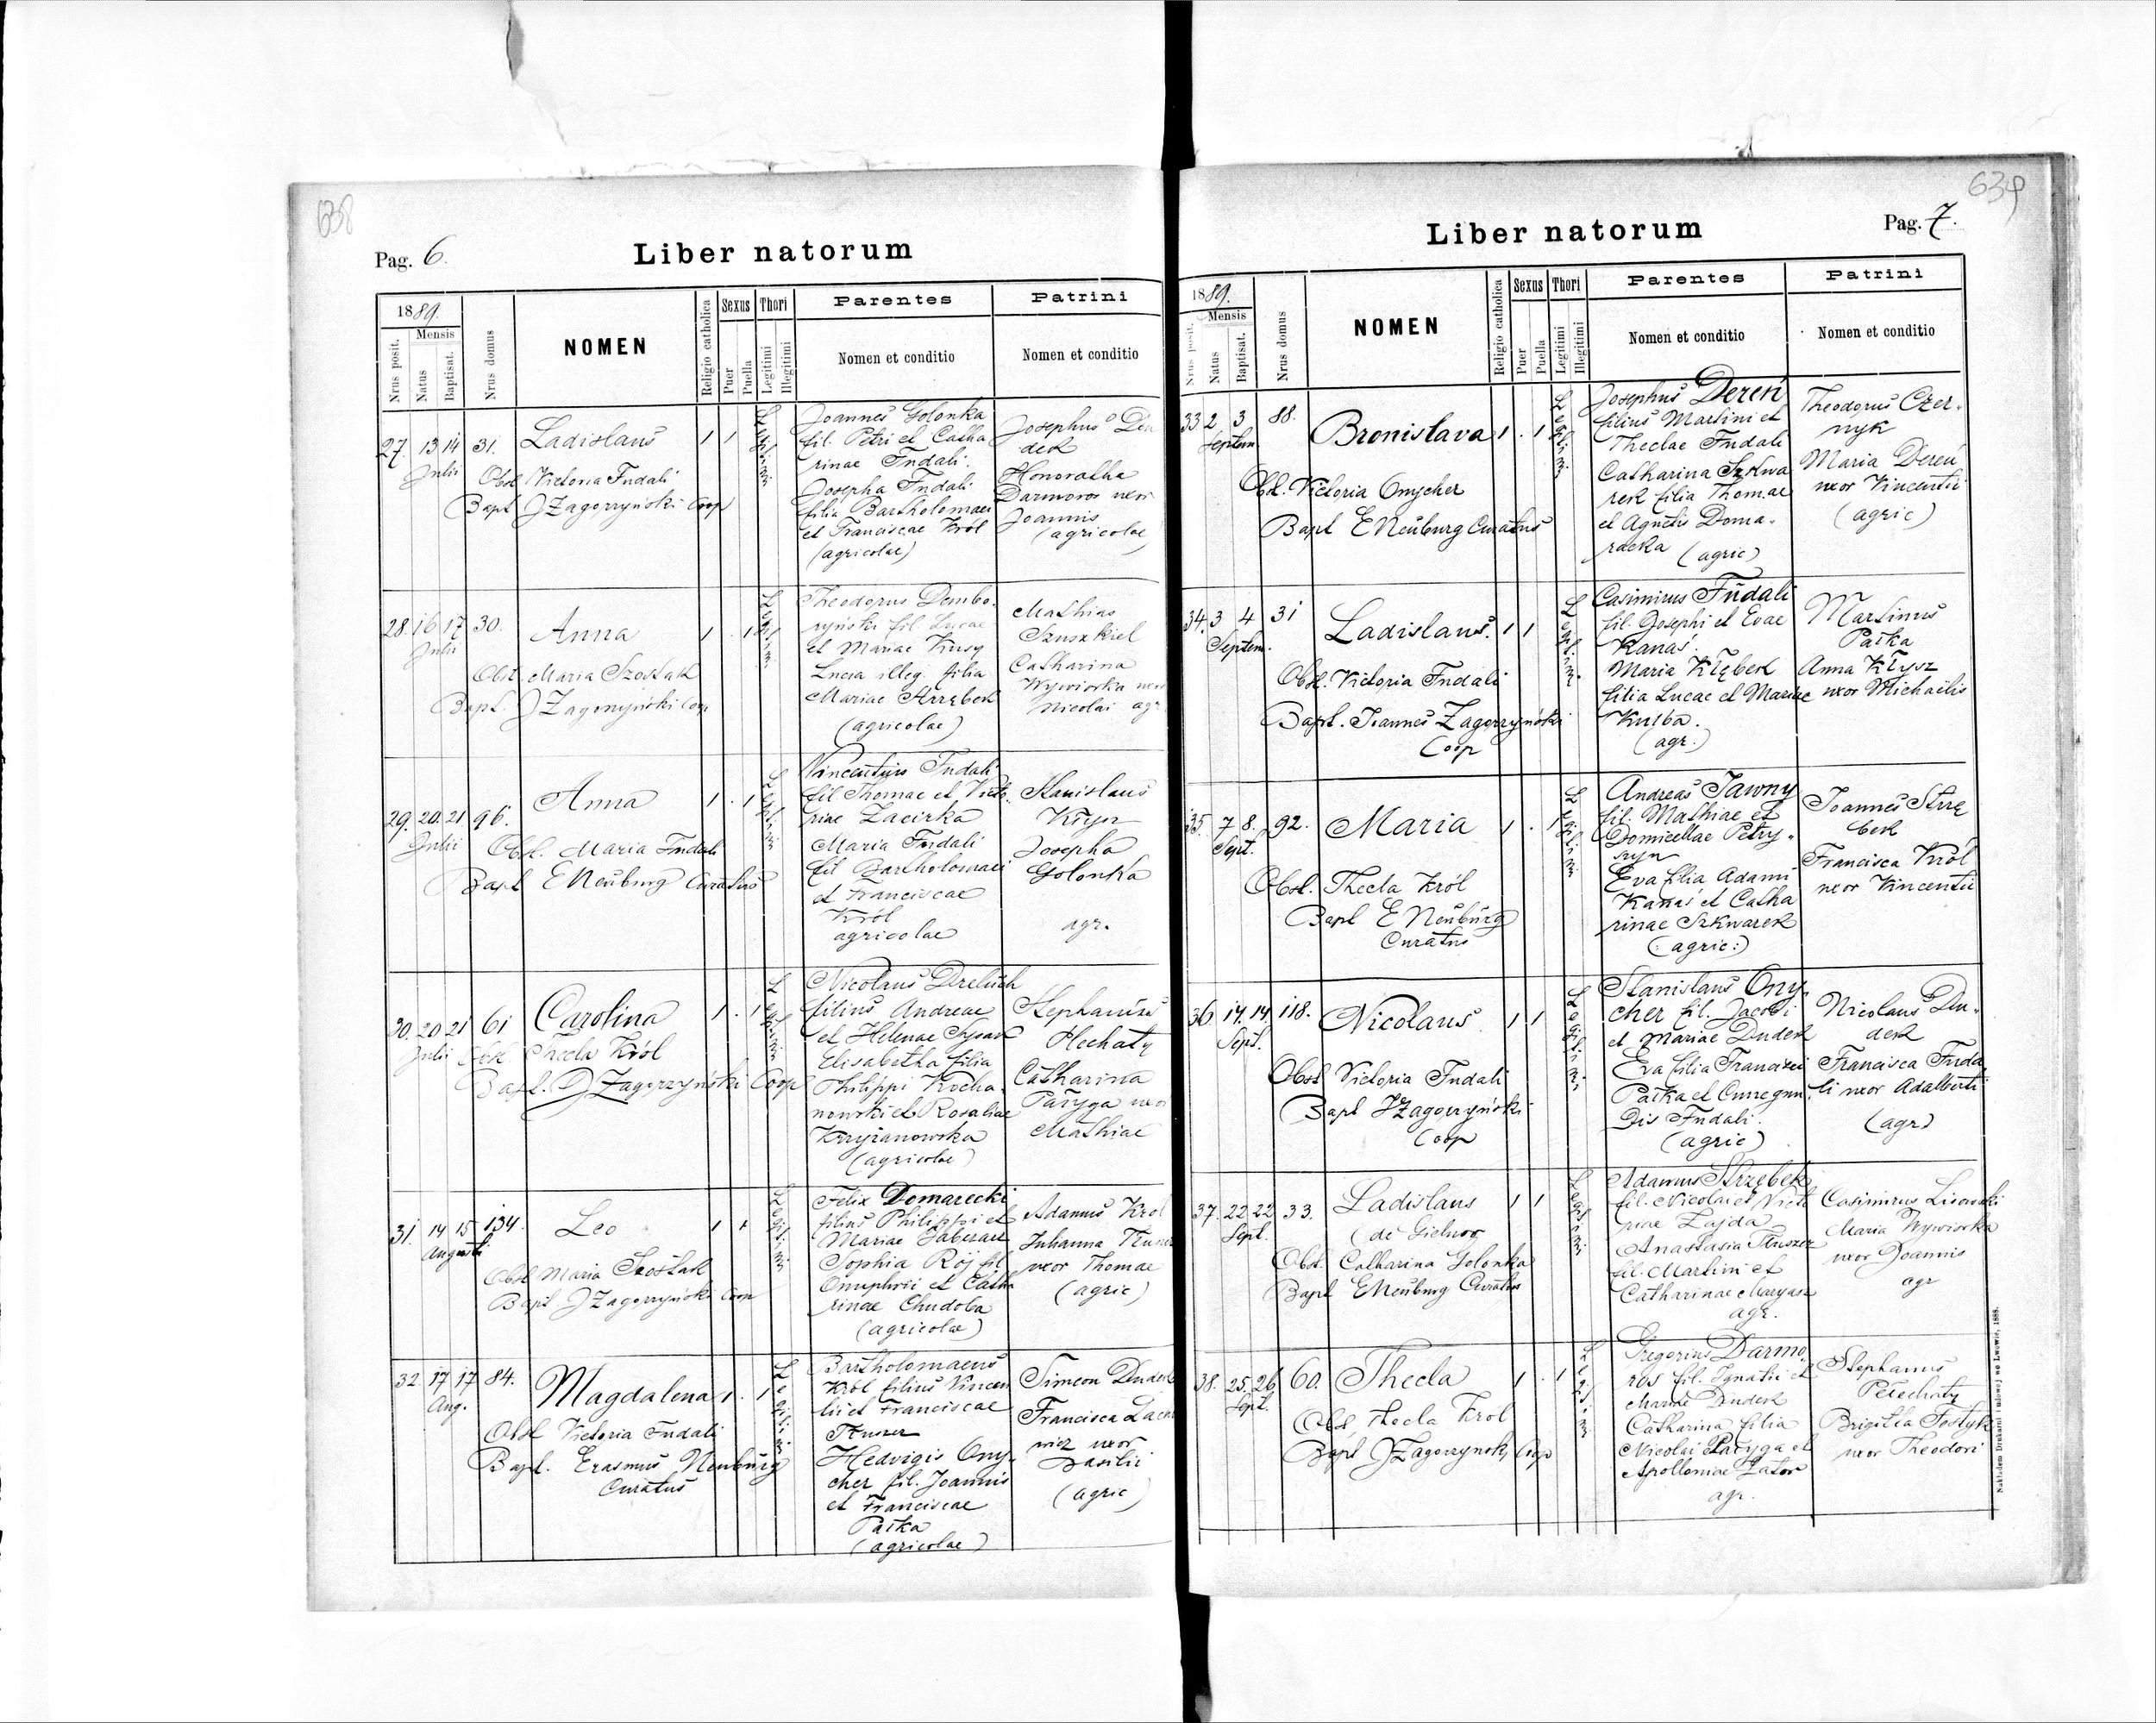 638
Pag. 6.
Liber natorum
1889.
Mensis
Nrus posit.
Natus
Baptisat.
Nrus domus
NOMEN
Religio catholica
Sexus
Puer
Puella
Thori
Legitimi
Illegitimi
Parentes
Nomen et conditio
Patrini
Nomen et conditio
27. 13 14 31. Ladislaus 1 1
Julii
Obst Victoria Fudali
Bapt J Zagorzyński Coop
Legitimi
Joannes Golonka
fil. Petri et Catha
rinae Fudali.
Josepha Fudali
filia Bartholomaei
et Franciscae Król
(agricolae)
Josephus
dek
Honoratha
Darmoros uxor
Joannis
(agricolae)
28. 16 17 30. Anna 1 . 1
Julii
Obst. Maria Szostak
Bapt. J Zagorzyński Coop
Legitimi
Theodorus Dembo-
ryński fil Lucae
et Mariae Kusy
Lucia illeg. filia
Mariae Strzębek
(agricolae)
Mathias
Szuszkiel
Catharina
Wywiorka uxor
Nicolai agr
29. 20. 21 96. Anna 1 . 1
Julii
Obst. Maria Fudali
Bapt E Neuburg Curatus
Legitimi
Vincentius Fudali
fil Thomae et Victo-
riae Zacirka
Maria Fudali
fil Bartholomaei
et Franciscae
Król
agricolae
Stanislaus
Kłysz
Josepha
Golonka
agr.
30. 20 21 61 Carolina 1 . 1
Julii Obst. Thecla Król
Bapt. J Zagorzyński Coop
Legitimi
Nicolaus Dreluch
filius Andreae
et Helenae
Elisabetha filia
Philippi Kocha-
nowski et Rosaliae
Krzyżanowska
(agricolae)
Stephanus
Catharina
Patyga uxor
Mathiae
31. 14 15 134. Leo 1 1
Augusti
Obst Maria Szostak
Bapt J Zagorzyński Coop
Legitimi
Felix Domarecki
filius Philippi et
Mariae
Sophia Rój fil
Onuphrii et Catha
rinae Chudoba
(agricolae)
Adamus Król
Juhanna
uxor Thomae
(agric)
32. 17 17 84. Magdalena 1 . 1
Aug.
Obst Victoria Fudali
Bapt. Erasmus Neuburg
Curatus
Legitimi
Bartholomaeus
Król filius Vincen
tii et Franciscae
Tłuszcz
Hedvigis Ony-
cher fil. Joannis
et Franciscae
Pałka
(agricolae)
Simeon
Francisca
wicz uxor
Basilii
(agric)
639
Liber natorum
Pag. 7.
1889.
Mensis
Nrus posit.
Natus
Baptisat.
Nrus domus
NOMEN
Religio catholica
Sexus
Puer
Puella
Thori
Legitimi
Illegitimi
Parentes
Nomen et conditio
Patrini
Nomen et conditio
33 2 3 88. Bronislava 1 . 1
Septem
Obst. Victoria Onycher
Bapt E Neuburg Curatus
Legitimi
Josephus Dereń
filius Martini et
Theclae Fudali
Catharina Szkwa
rek filia Thomae
et Agnetis Doma-
racka (agric)
Theodorus Czer-
nyk
Maria Dereń
uxor Vincentii
(agric)
34. 3 4 31 Ladislaus. 1 1
Septem.
Obst. Victoria Fudali
Bapt. Joannes Zagorzyński
Coop
Legitimi
Casimirus Fudali
fil. Josephi et Evae
Kanas.
Maria Kłębek
filia Lucae et Mariae
Kulba.
(agr.)
Martinus
Pałka
Anna Kłysz
uxor Michaëlis
35. 7 8. 92. Maria 1 . 1
Sept.
Obst. Thecla Król
Bapt E Neuburg
Curatus
Legitimi
Andreas Jawny
fil. Mathiae et
Domicellae Petry-
szyn
Eva filia Adami
Kanas et Catha
rinae Szkwarek
(agric:)
Joannes Strzę
bek
Francisca Król
uxor Vincentii
36. 14. 14. 118. Nicolaus 1 1
Sept.
Obst Victoria Fudali
Bapt J Zagorzyński
Coop
Legitimi
Stanislaus Ony-
cher fil. Jacobi
et Mariae Dudek
Eva filia Francisci
Pałka et Cunegun
dis Fudali.
(agric)
Nicolaus Du-
dek
Francisca Fuda
li uxor Adalberti
(agr)
37. 22 22 33. Ladislaus 1 1
Sept. (de
Obst. Catharina Golonka
Bapt E Neuburg Curatus
Legitimi
Adamus Strzębek
fil. Nicolai et Victo
riae Zajda
Anastasia Tłuszcz
fil. Martini et
Catharinae Maryasz
agr.
Casimirus Lisowski
Maria Wywiorka
uxor Joannis
agr
38. 25. 26 60. Thecla 1 . 1
Sept.
Obst. Thecla Król
Bapt J Zagorzyński Coop
Legitimi
Gregorius Darmo-
ros fil. Ignatii et
Mariae Dudek
Catharina filia
Nicolai Patyga et
Apolloniae Zator
agr.
Stephanus
Pełechaty
Brigitta Fostyk
uxor Theodori